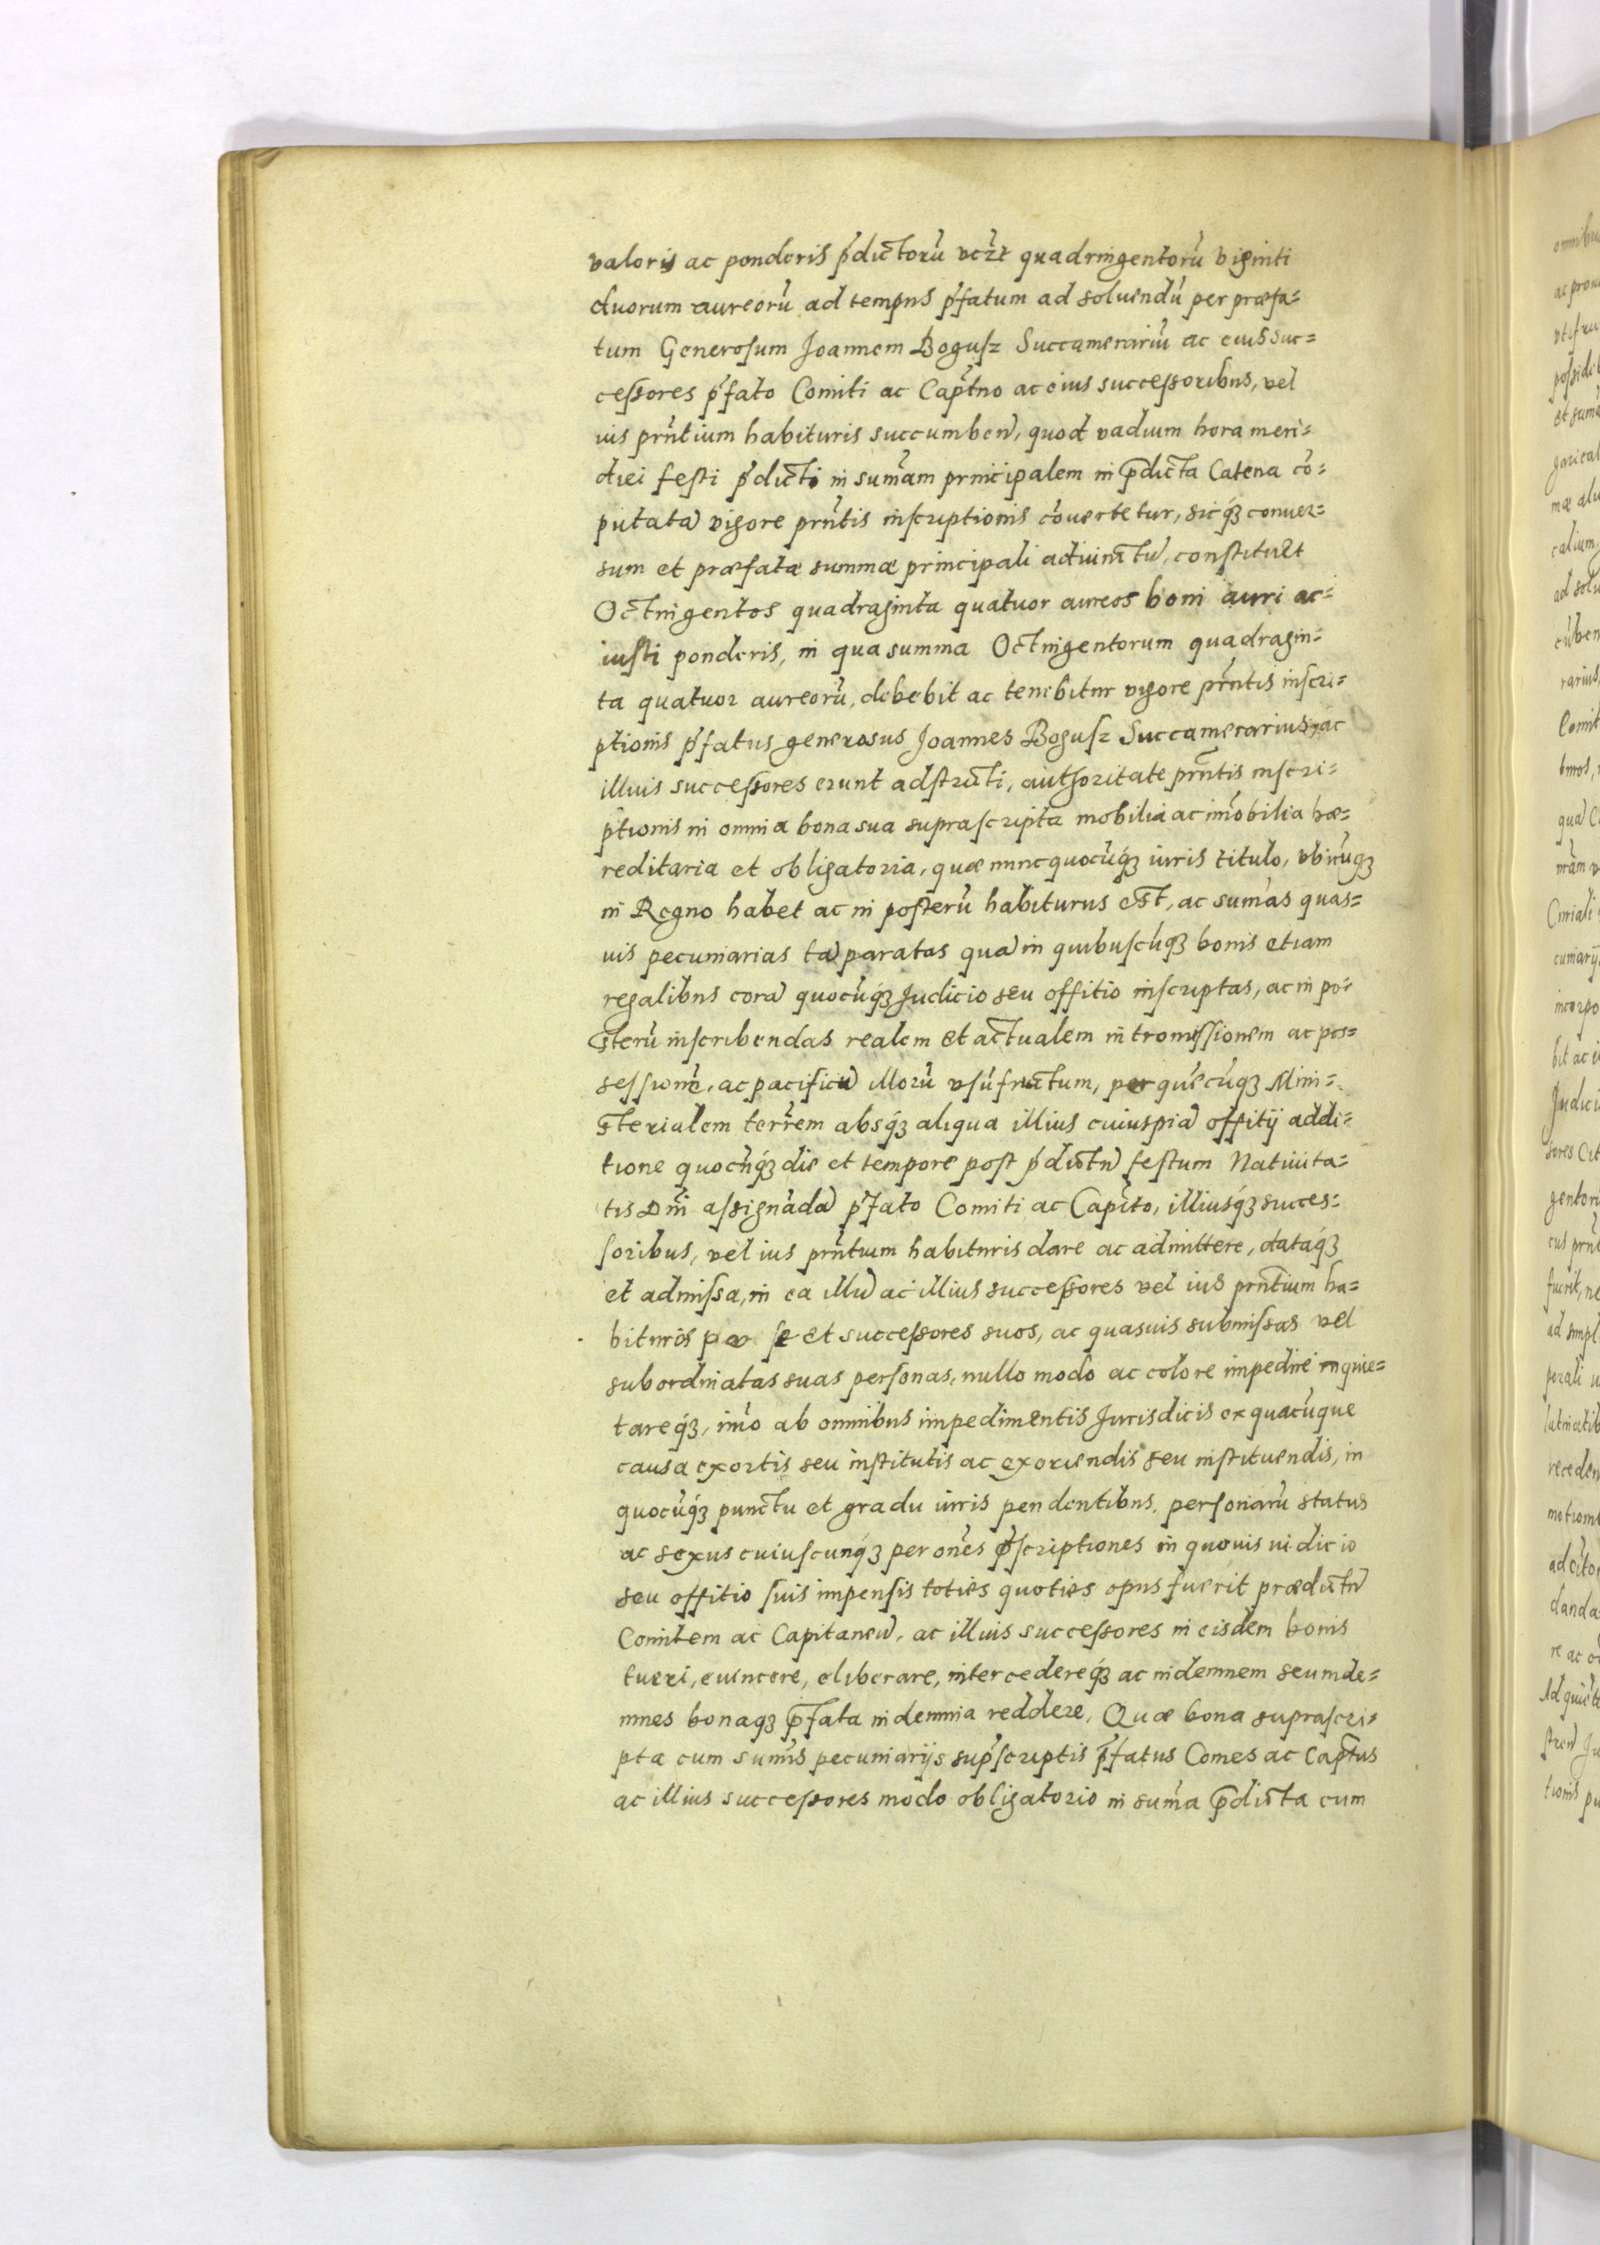 valoris ac ponderis p̃dictorũ vczt quadringentorũ viginti
duorum aureorũ ad tempus p̃fatum ad soluendũ per præfa=
tum Generosum Joannem Bogusz Succamerariũ ac eius suc=
cessores p̃fato Comiti ac Captño ac eius successoribus, vel
uis prñtium habituris succumbeñ, quod vadium hora meri=
diei festi p̃dicti in sum̃am principalem in p̃dicta Catena cõ=
putatã vigore prñtis inscriptionis cõuertetur, sicq́ʒ conuer=
sum et præfatæ summæ principali adiunctũ, constituet
Octingentos quadraginta quatuor aureos boni auri ac=
iusti ponderis, in qua summa Octingentorum quadragin=
ta quatuor aureorũ, debebit ac tenebitur vigore prñtis inscri=
ptionis p̃fatus generosus Joannes Bogusz Succamerarius, ac
illius successores erunt adstricti, authoritate prñtis inscri=
ptionis in omnia bona sua suprascripta mobilia ac im̃obilia hæ=
reditaria et obligatoria, quæ nunc quocũq́ʒ iuris titulo, vbicũqʒ
in Regno habet ac in posterũ habiturus est, ac sum̃as quas=
uis pecuniarias tã paratas quã in quibuscũqʒ bonis etiam
regalibus corã quocũq́ʒ Judicio seu offitio inscriptas, ac in po=
sterũ inscribendas realem et actualem intromissionem ac pos=
sessionẽ, ac pacificũ illorũ vsũfructum, per quẽcũqʒ Mini=
sterialem terrẽm absq́ʒ aliqua illius cuiuspiã offitij addi=
tione quocũq́ʒ die et tempore post p̃dictũ festum Natiuita=
tis Dñi assignãdã p̃fato Comiti ac Capito, illiusq́ʒ succes=
soribus, vel ius prñtium habituris dare ac admittere, dataq́ʒ
et admissa, in ea illũ ac illius successores vel ius prñtium ha=
bituros per se et successores suos, ac quasuis submissas vel
subordinatas suas personas, nullo modo ac colore impedire inquie=
tareq́ʒ, im̃o ab omnibus impedimentis Jurisdicis ex quacũque
causa exortis seu institutis ac exoriendis seu instituendis, in
quocũq́ʒ punctu et gradu iuris pendentibus, personarũ status
ac sexus cuiuscunq́ʒ per oñes p̃scriptiones in quouis iudicio
seu offitio suis impensis toties quoties opus fuerit prædictũ
Comitem ac Capitaneũ, ac illius successores in eisdem bonis
tueri, euincere, eliberare, intercedereq́ʒ ac indemnem seu inde=
mnes bonaqʒ p̃fata indemnia reddere, Quæ bona suprascri=
pta cum sum̃is pecuniarijs sup̃scriptis p̃fatus Comes ac Captus
ac illius successores modo obligatorio in sum̃a p̃dicta cum